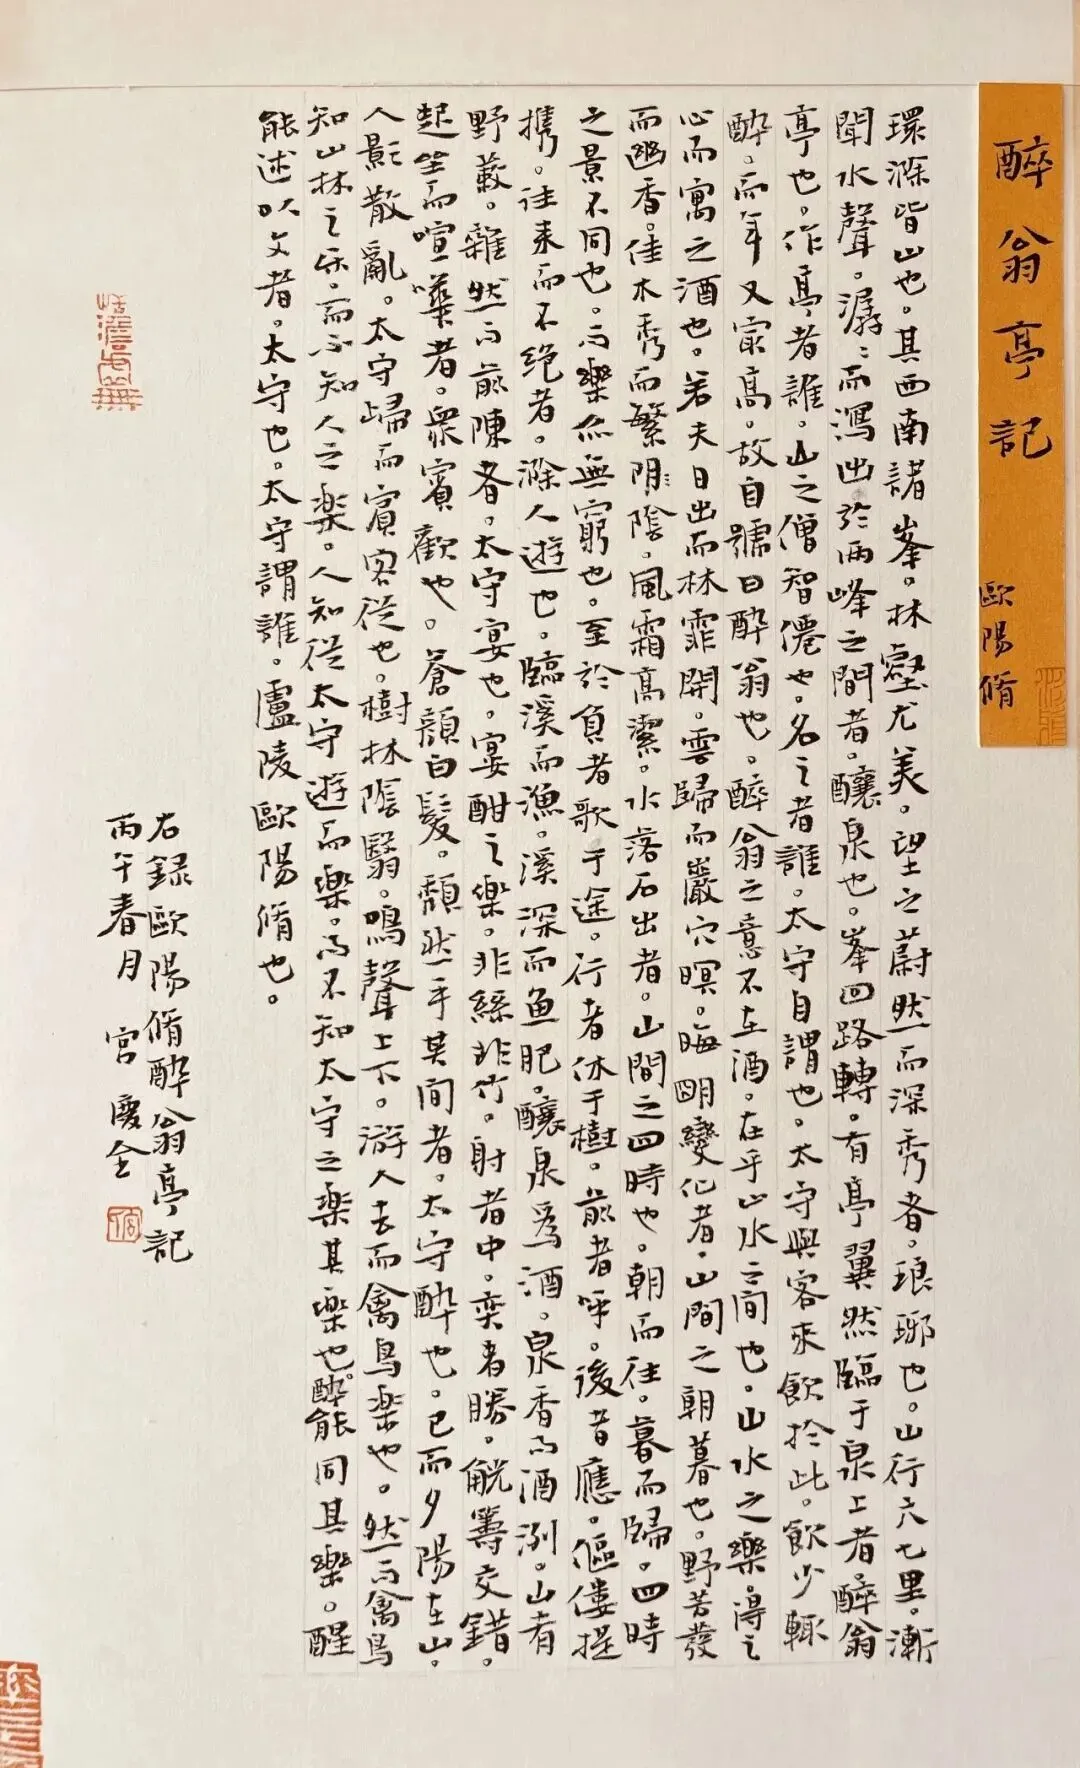 醉翁亭記
歐陽脩
環滁皆山也。其西南諸峯。林壑尤美。望之蔚然而深秀者。琅琊也。山行六七里。漸
聞水聲。潺〻而瀉出於兩峰之間者。釀泉也。峯回路轉。有亭翼然臨于泉上者。醉翁
亭也。作亭者誰。山之僧智僊也。名之者誰。太守自謂也。太守與客來飲於此。飲少輒
醉。而年又最高。故自號曰醉翁也。醉翁之意不在酒。在乎山水之間也。山水之樂。得之
心而寓之酒也。若夫日出而林霏開。雲歸而巖穴暝。晦明變化者。山間之朝暮也。野芳發
而幽香。佳木秀而繁陰。風霜高潔。水落石出者。山間之四時也。朝而往。暮而歸。四時
之景不同也。而樂亦無窮也。至於負者歌于途。行者休于樹。前者呼。後者應。傴僂提
携。往来而不绝者。滁人遊也。臨溪而漁。溪深而魚肥。釀泉爲酒。泉香而酒洌。山肴
野蔌。雜然而前陳者。太守宴也。宴酣之樂。非絲非竹。射者中。奕者勝。觥籌交錯。
起坐而喧嘩者。衆賓歡也。蒼顏白髮。頹然乎其間者。太守醉也。已而夕陽在山。
人影散亂。太守歸而賓客從也。樹林陰翳。鳴聲上下。游人去而禽鳥樂也。然而禽鳥
知山林之乐。而不知人之樂。人知從太守遊而樂。而不知太守之樂其樂也。醉能同其樂。醒
能述以文者。太守也。太守謂誰。廬陵歐陽脩也。
右録歐陽脩醉翁亭記
丙午春月 宮慶全